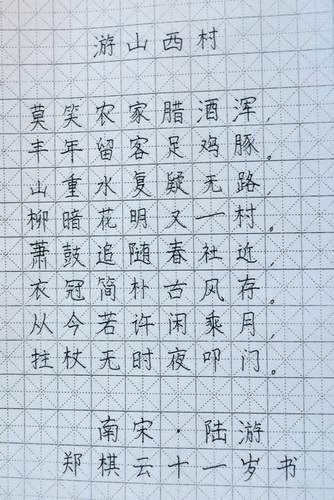 游山西村
莫笑农家腊酒浑，
丰年留客足鸡豚。
山重水复疑无路，
柳暗花明又一村。
萧鼓追随春社近，
衣冠简朴古风存。
从今若许闲乘月，
拄杖无时夜叩门。
南宋·陆游
郑棋云十一岁书